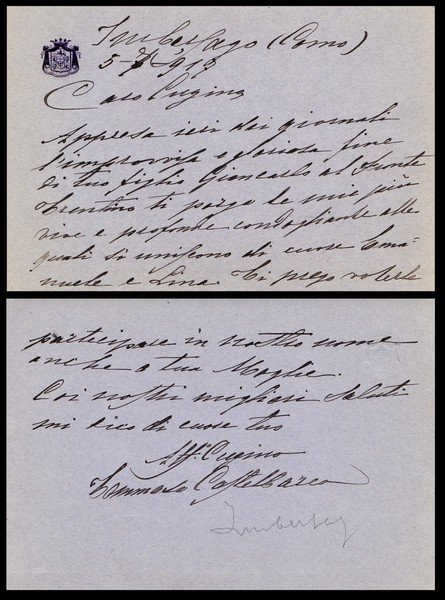 Imbersago (Como)
5-7-1917
Caro Cugino,
Appresa ieri dai giornali
l'improvvisa e gloriosa fine
di tuo figlio Giancarlo al fronte
Trentino ti porgo le mie più
vive e profonde condoglianze alle
quali si uniscono di cuore Ema-
nuele e Lina. Ti prego volerle
participare in nostro nome
anche a tua Moglie.
Coi nostri migliori saluti
mi dico di cuore tuo
Aff. Cugino
Tommaso Castelbarco
Imbersag